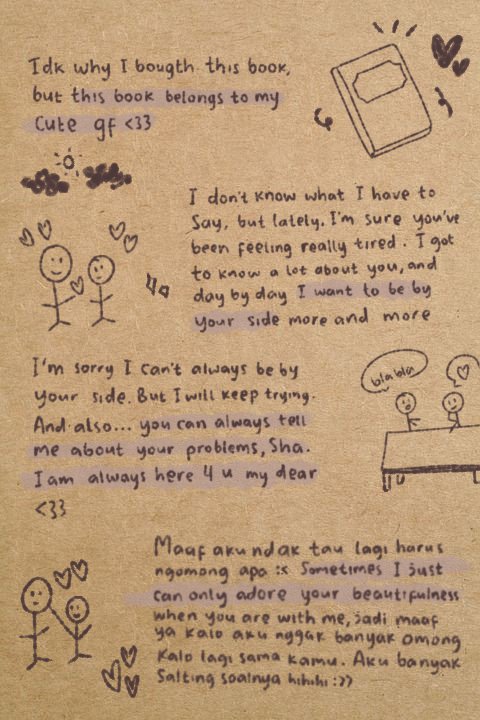 Idk why I bougth this book,
but this book belongs to my
cute gf <33
I don't know what I have to
say, but lately. I'm sure you've
been feeling really tired. I got
to know a lot about you, and
day by day I want to be by
your side more and more
I'm sorry I can't always be by
your side. But I will keep trying.
And also... you can always tell
me about your problems, Sha.
I am always here 4 u my dear
<33
blabla
Maaf aku ndak tau lagi harus
ngomong apa :< Sometimes I just
can only adore your beautifulness
when you are with me, jadi maaf
ya kalo aku nggak banyak omong
kalo lagi sama kamu. Aku banyak
salting soalnya hihihi :>>